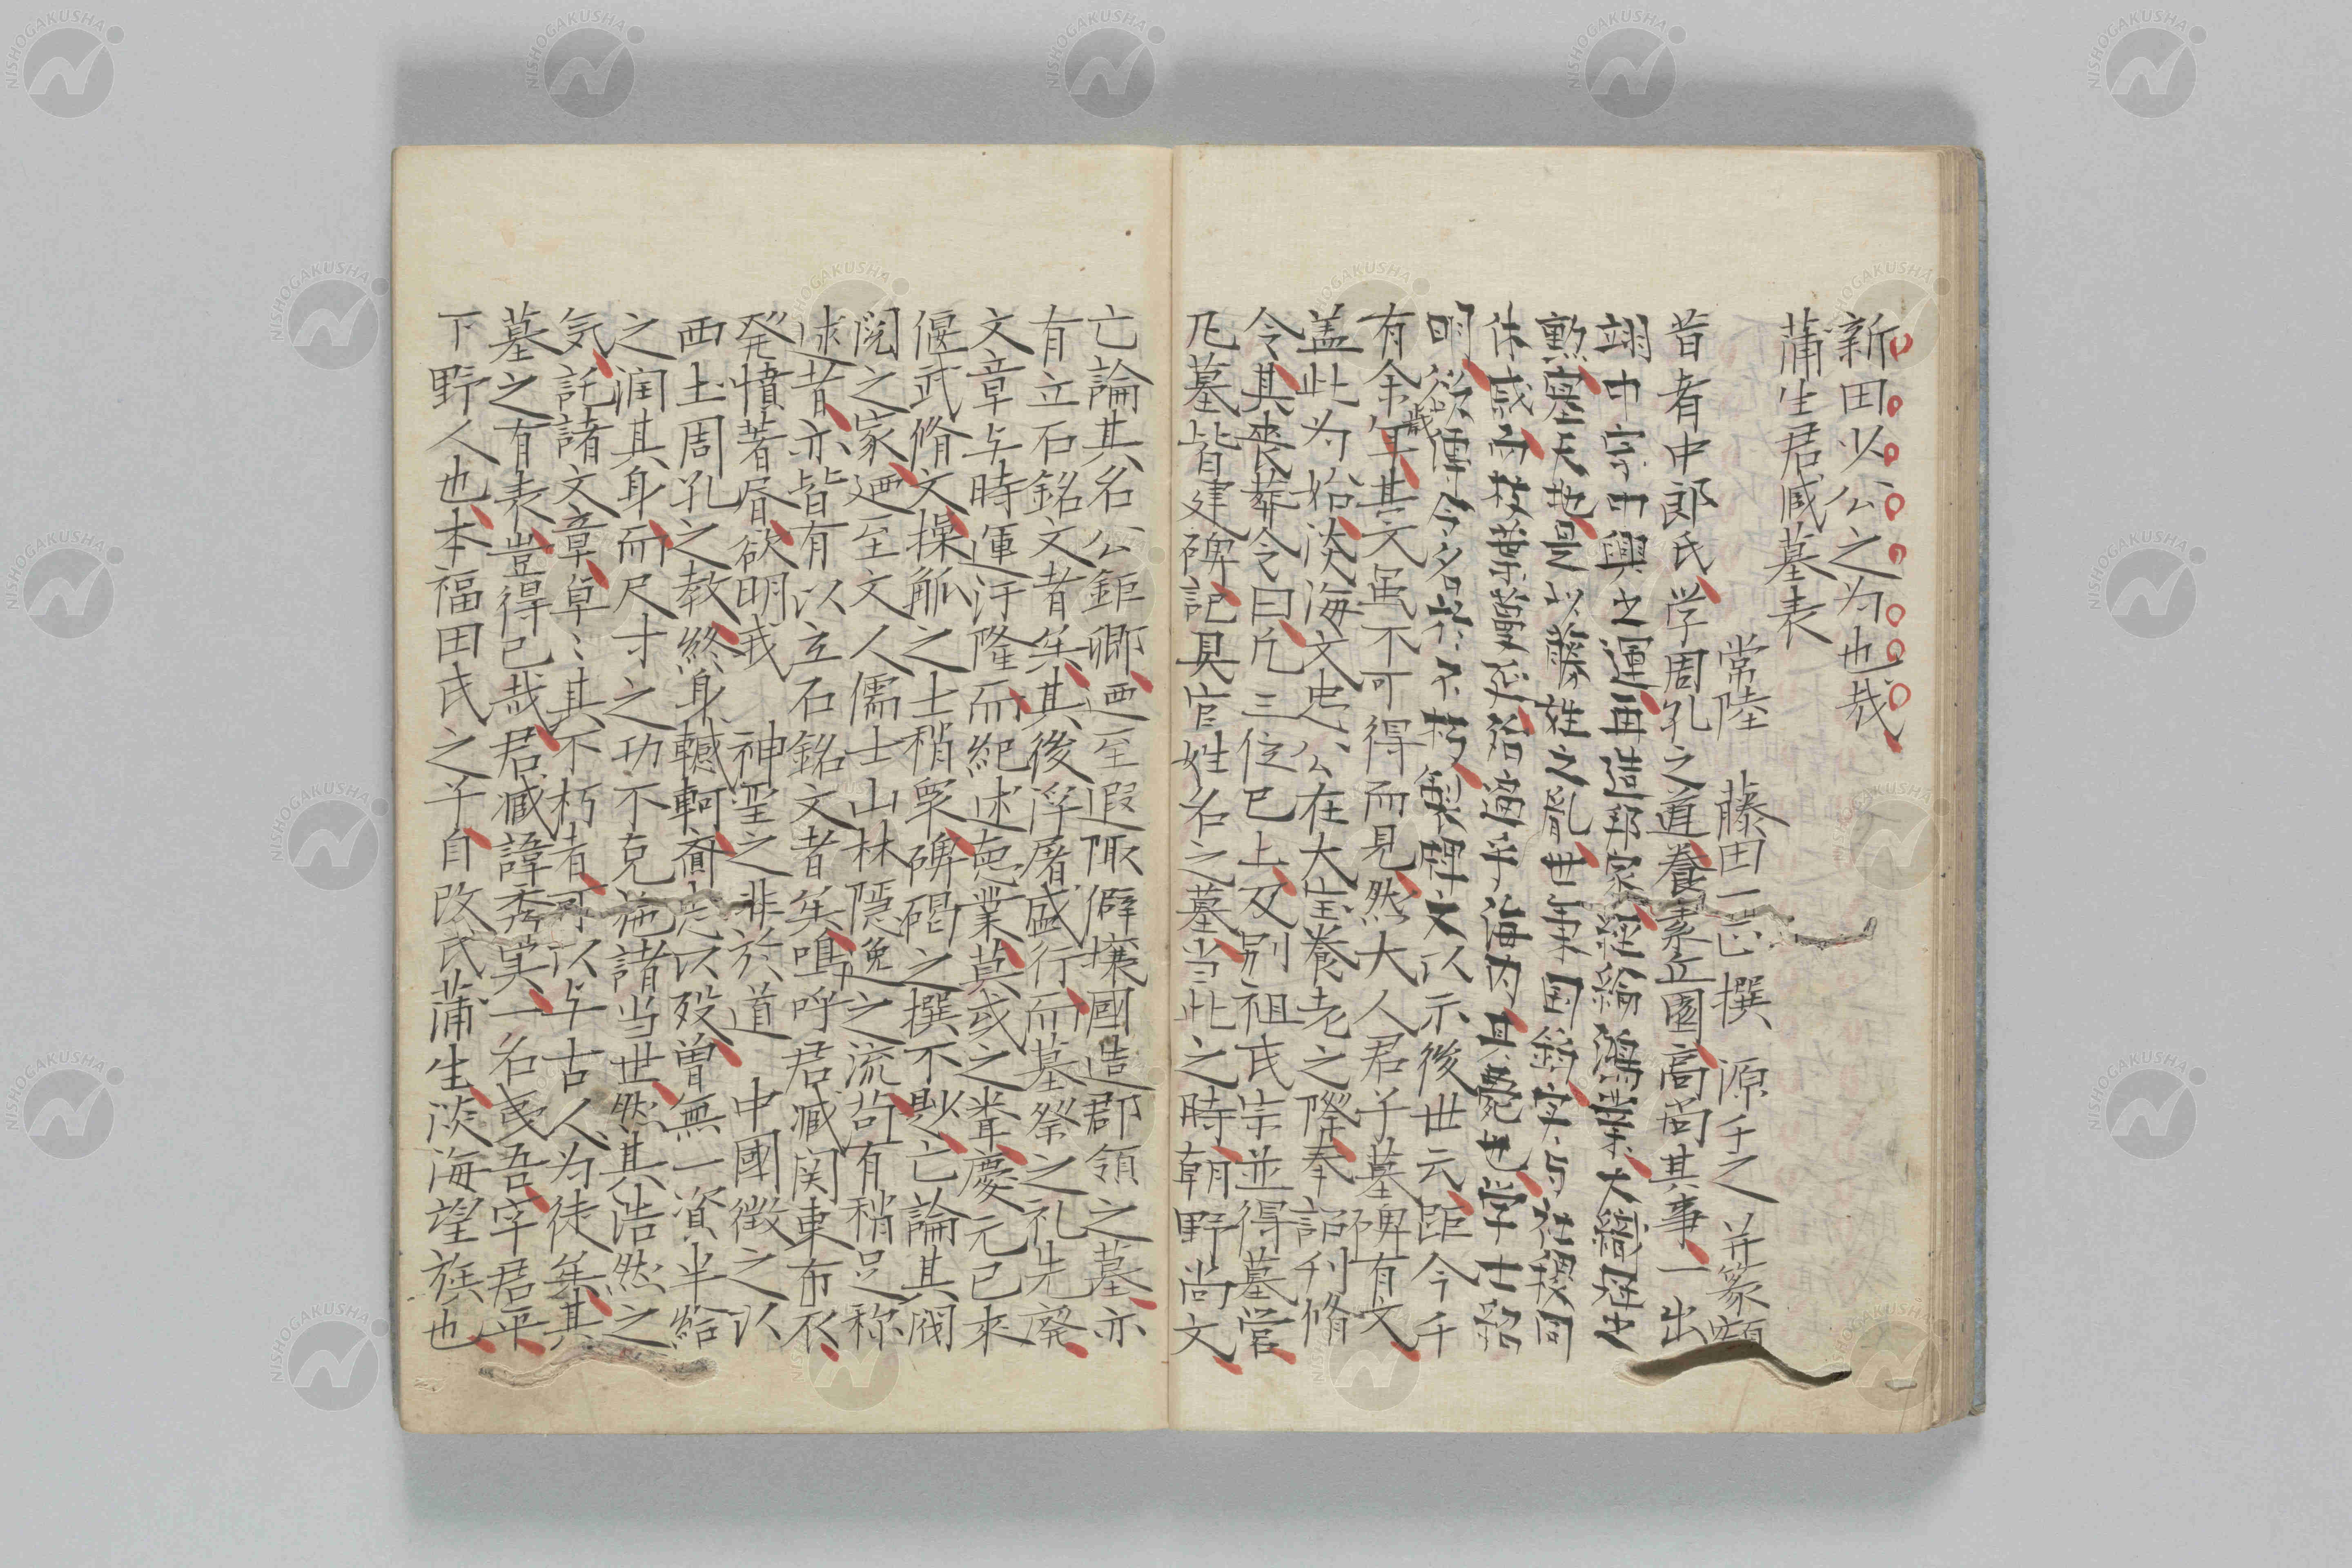 新田公之为也哉
蒲生君臧墓表
常陸 藤田一正撰 源千之 并篆額
昔者中郎氏学周孔之道養素丘園高尚其事一出
翊中宗中興之運再造邦家経綸鴻業大織冠之
勲塞天地是以藤姓之胤世秉国鈞与社稷同
休戚而枝葉蔓延殆遍乎海内其薨也学士紹
明欲傳令名於不朽製碑文以示後世云距今千
有余年歳其文虽不可得而見然大人君子墓碑有文
盖此为始淡海文忠公在大宝養老之際奉詔刊脩
令其喪葬令曰凡三位已上及别祖氏宗並得墓営
凡墓皆建碑記具官姓名之墓当此之時朝野尚文
亡論其名公鉅卿迺至遐陬僻壤國造郡領之墓亦
有立石銘文者矣其後浮屠盛行而墓祭之礼先廃
文章与時運汙隆而紀述徳業莫或之聿慶元已來
偃武脩文操觚之士稍衆碑碣之撰不尠亡論其閥
閲之家迺至文人儒士山林隠逸之流苟有稍足称
述者亦皆有以立石銘文者矣嗚呼君臧関東布衣
発憤著眉欲明我 神聖之 非於道 中國徴之以
西土周孔之教終身轗軻齎志以歿曽無一資半給
之潤其身而尺寸之功不克施諸当世然其浩然之
気託諸文章卓〻其不朽者可以与古人为徒矣其
墓之有表豈得已哉君臧諱秀実一名夷吾字君平
下野人也本福田氏之子自改氏蒲生淡海望族也